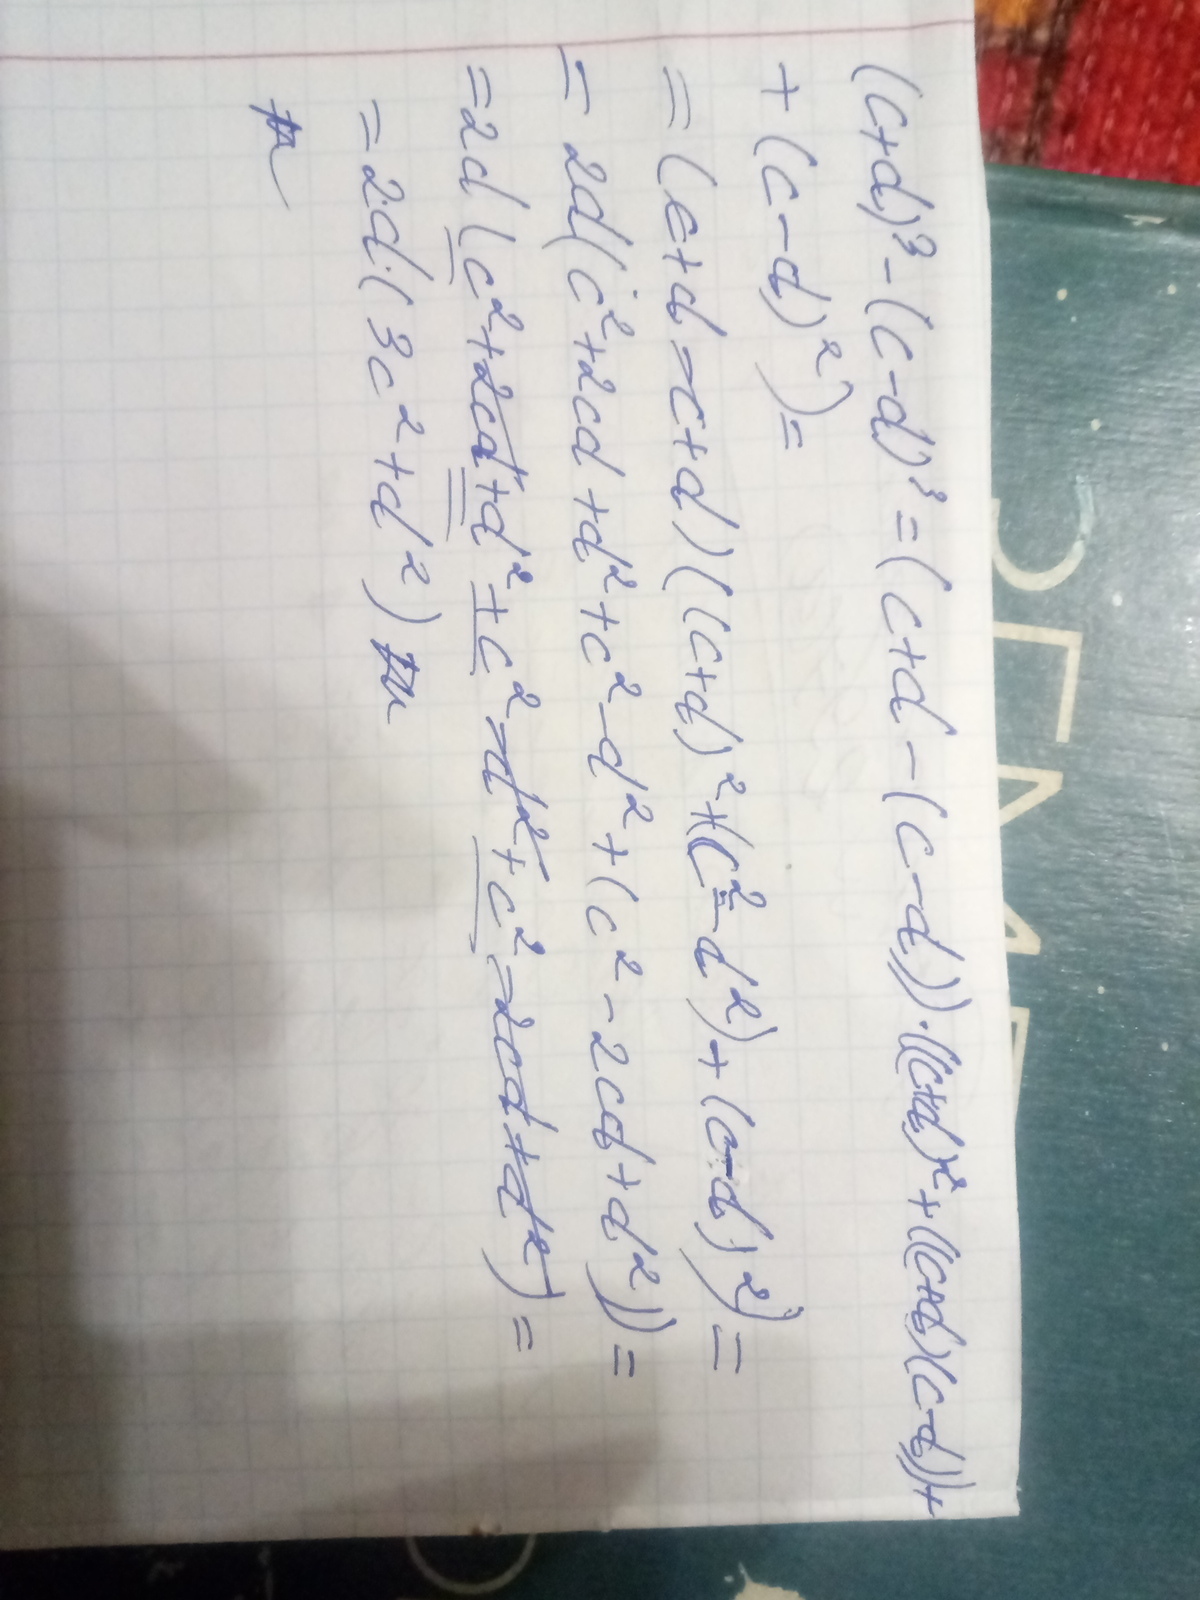 (c+d)³-(c-d)³=(c+d-(c-d))·((c+d)²+((c+d)(c-d))+
+(c-d)²)=
=(c+d-c+d)((c+d)²+(c²-d²)+(c-d)²)=
=2d(c²+2cd+d²+c²-d²+(c²-2cd+d²))=
=2d(c²+2cd+d²+c²-d²+c²-2cd+d²)=
=2·d·(3c²+d²)